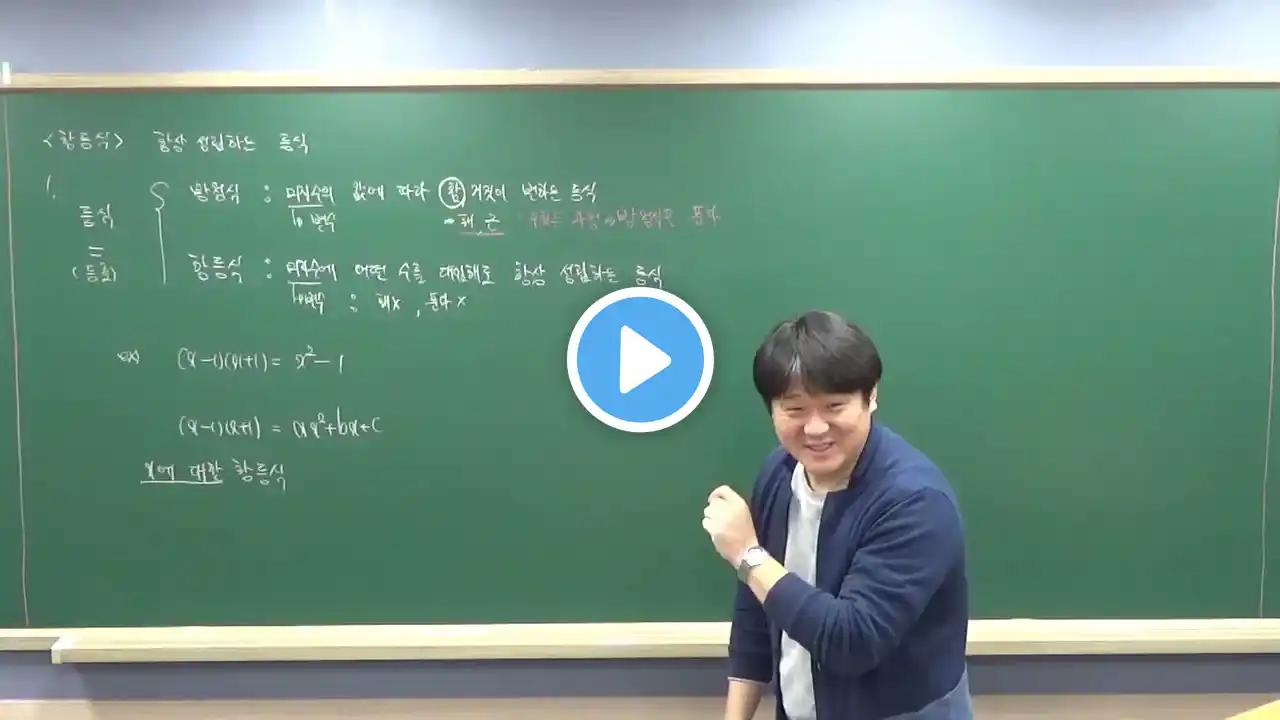 <항등식> 항상 성립하는 등식
방정식 : 미지수의 값에 따라 참 거짓이 변하는 등식
등식 → 변수 → 해, 근 : 구하는 과정 → 방정식을 푼다
=
(등호) 항등식 : 미지수에 어떤 수를 대입해도 항상 성립하는 등식
→ 변수 : 해x , 푼다 x
ex) (x-1)(x+1) = x²-1
(x-1)(x+1) = ax²+bx+c
x에 대한 항등식